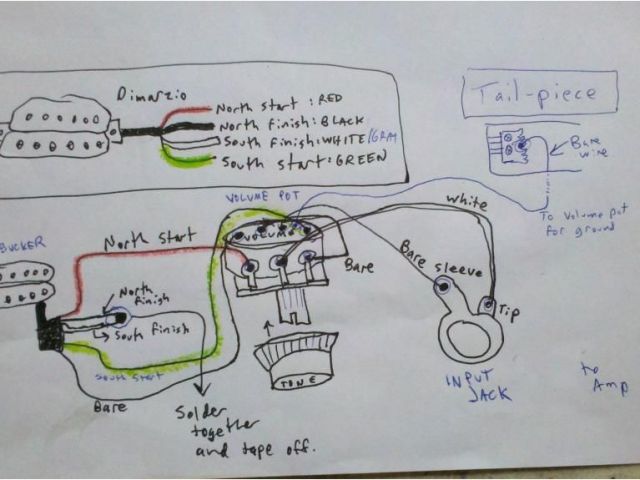 Dimarzio
North start : RED
North finish: BLACK
South finish: WHITE/GRAY
South start: GREEN
Tail-piece
Bare
wire
To Volume pot
for ground
VOLUME POT
VOLUME
white
BUCKER
North Start
Bare
Bare sleeve
North
finish
South finish
Tip
South start
Bare
TONE
INPUT
JACK
to
Amp
Solder
together
and tape off.